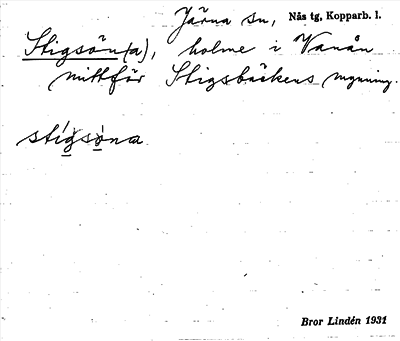 Järna sn, Nås tg, Kopparb. l.
Stigsön(a), holme i Vanån
mittför Stigsbäckens mynning.
stígsòna
Bror Lindén 1931